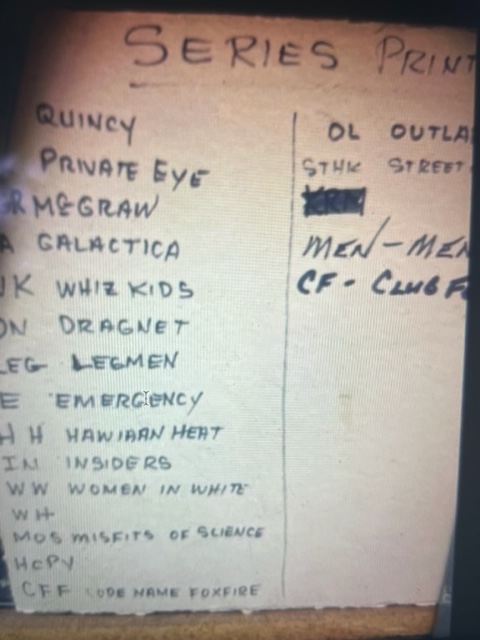 SERIES PRINT
QUINCY
PRIVATE EYE
R McGRAW
A GALACTICA
K WHIZ KIDS
ON DRAGNET
LEG LEGMEN
E EMERGENCY
H H HAWIAAN HEAT
IN INSIDERS
WW WOMEN IN WHITE
WH
MOS MISFITS OF SCIENCE
HCPV
CFF CODE NAME FOXFIRE
OL OUTLA
STHK STREET
MEN - MEN
CF - CLUB F